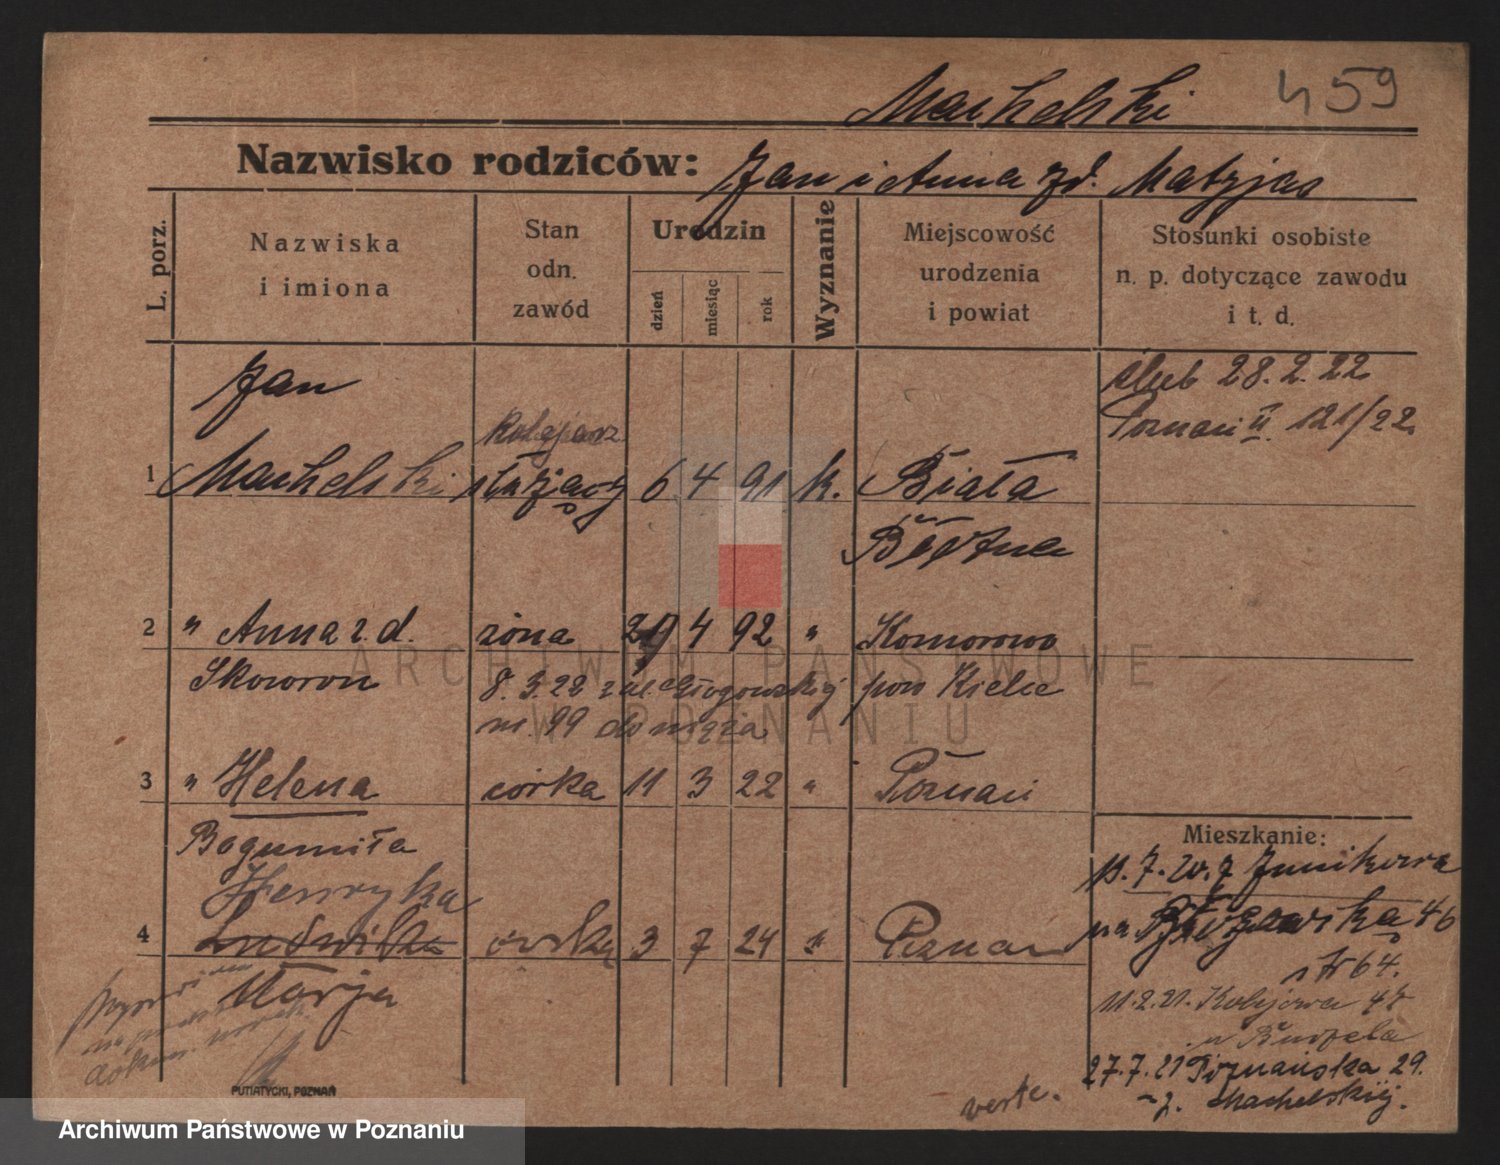 Machelski 459
Nazwisko rodziców: Jan i Anna zd. Matyjas
L. porz.
Nazwiska i imiona
Stan odn. zawód
Urodzin
dzień miesiąc rok
Wyznanie
Miejscowość urodzenia i powiat
Stosunki osobiste n. p. dotyczące zawodu i t. d.
Jan
ślub 28.2.22
Poznań II 121/22
kolejarz
1 Machelski służący 6 4 91 k. Biała
Błotna
2 " Anna z. d. żona 4 92 " Komorowo
Skowron 8.3.22 Głogowskiej pow Kielce
nr. 99 do męża
3 " Helena córka 11 3 22 " Poznań
Bogumiła
Mieszkanie:
Junikowa
Henryka
4 Ludwika córka 3 7 24 " Poznań
na 46
Marja
64.
11.2.21. Kolejowa 47
27.7.21 Poznańska 29.
Machelskiej.
verte.
PUTIATYCKI, POZNAŃ
ARCHIWUM PAŃSTWOWE
W POZNANIU
Archiwum Państwowe w Poznaniu